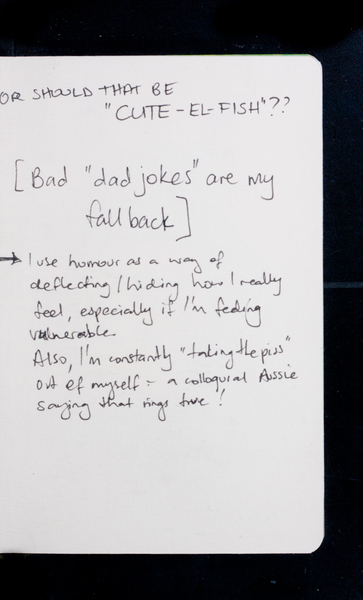 OR SHOULD THAT BE
"CUTE-EL-FISH"??
[Bad "dad jokes" are my
fall back]
→ I use humour as a way of
deflecting/hiding how I really
feel, especially if I'm feeling
vulnerable.
Also, I'm constantly "taking the piss"
out of myself - a colloquial Aussie
saying that rings true!